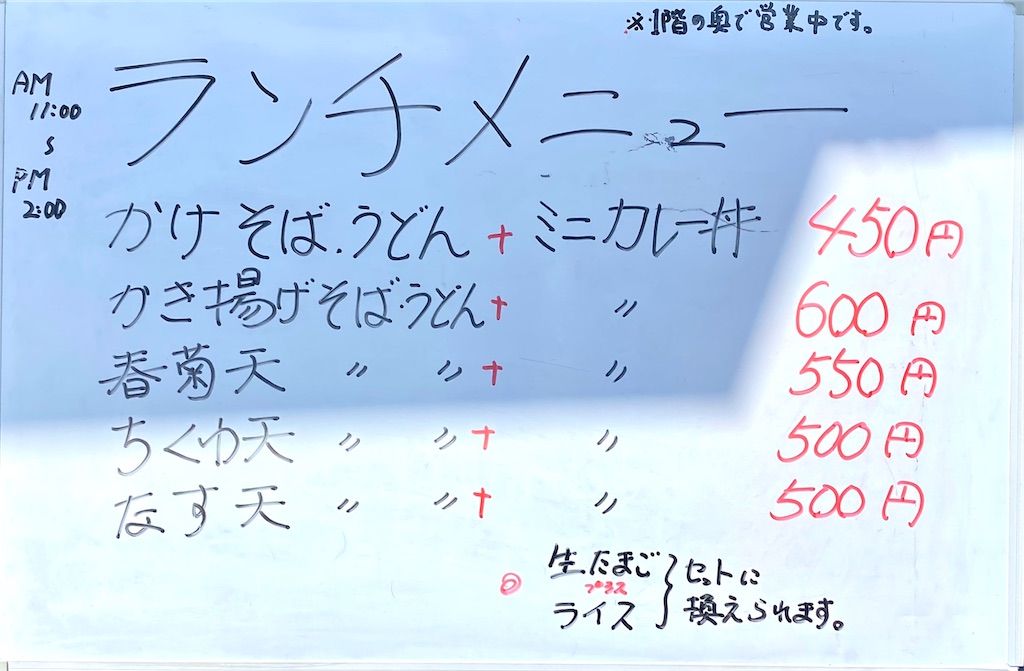 ※1階の奥で営業中です。
AM
11:00
〜
PM
2:00
ランチメニュー
かけそば・うどん+ミニカレー丼 450円
かき揚げそば・うどん+ 〃 600円
春菊天 〃 〃+ 〃 550円
ちくわ天 〃 〃+ 〃 500円
なす天 〃 〃+ 〃 500円
◎ 生たまご
プラス
ライス
セットに
換えられます。